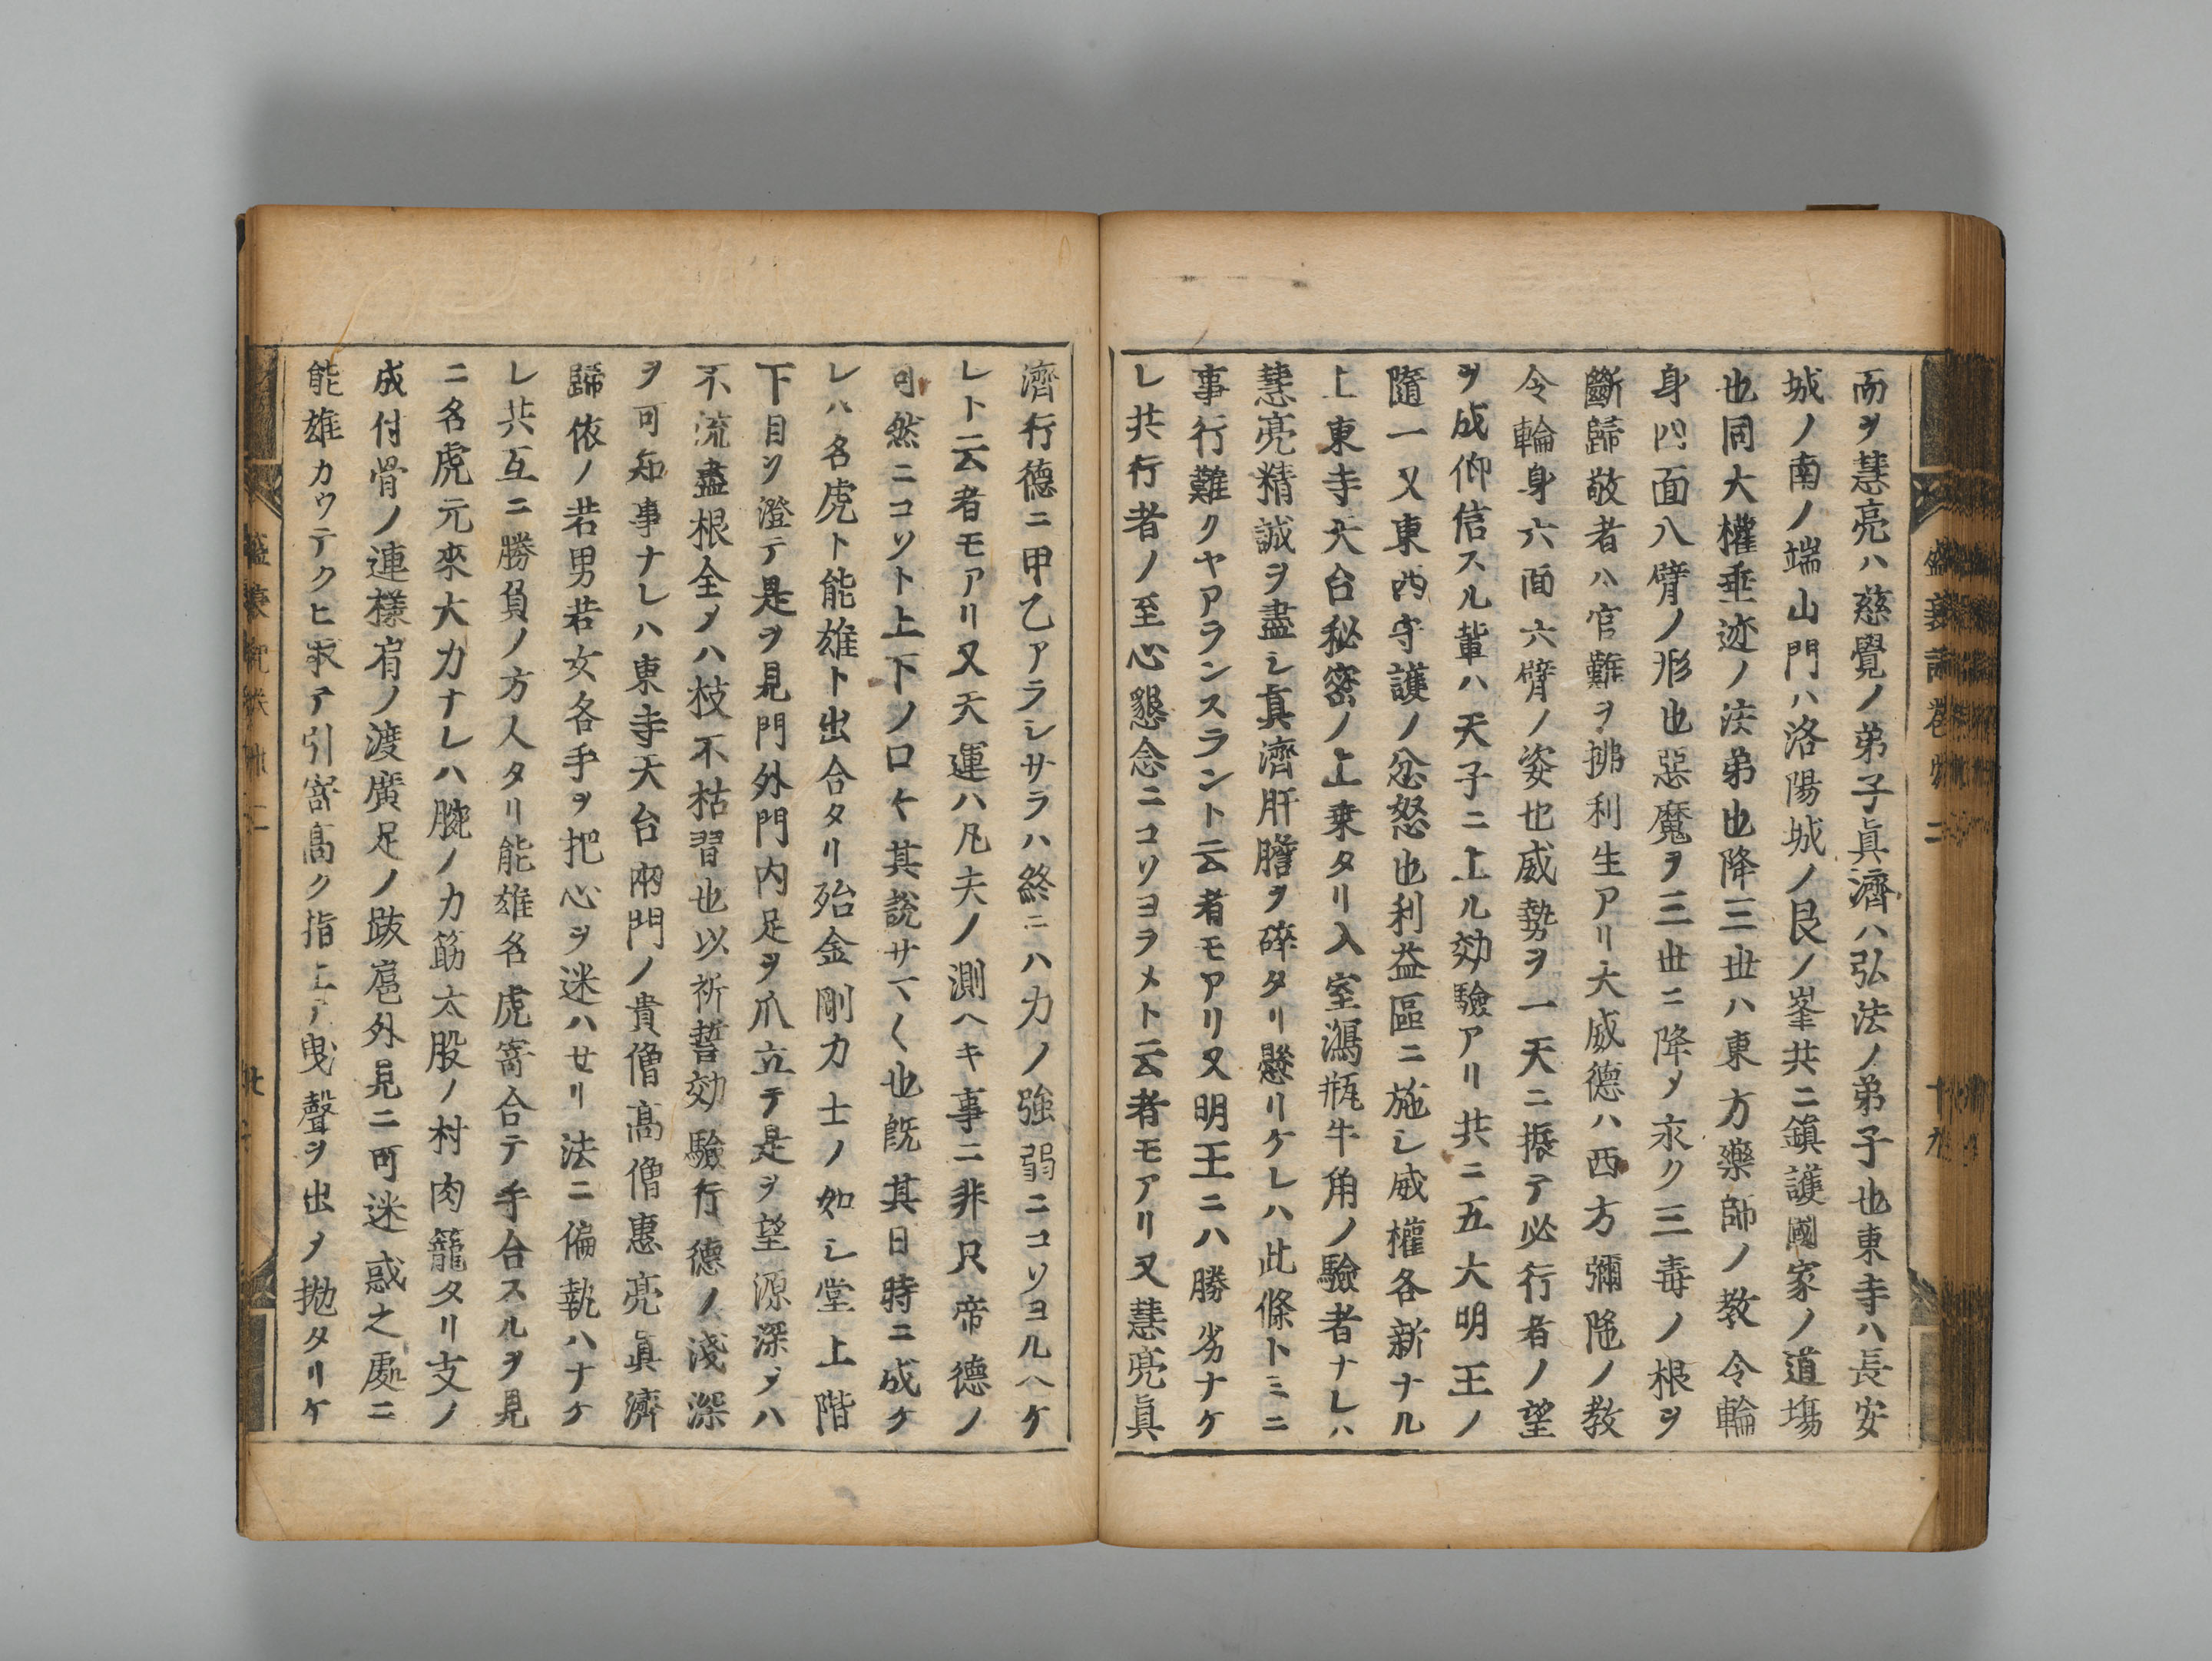 而ヲ慧亮ハ慈覺ノ弟子眞濟ハ弘法ノ弟子也東寺ハ長安
城ノ南ノ端山門ハ洛陽城ノ艮ノ峯共ニ鎮護國家ノ道塲
也同大權垂迹ノ法弟也降三世ハ東方藥師ノ教令輪
身四面八臂ノ形也惡魔ヲ三世ニ降メ永ク三毒ノ根ヲ
斷歸敬者ハ官難ヲ拂利生アリ大威德ハ西方彌陁ノ教
令輪身六面六臂ノ姿也威勢ヲ一天ニ振テ必行者ノ望
ヲ成仰信スル輩ハ天子ニ上ル効驗アリ共ニ五大明王ノ
隨一又東西守護ノ忿怒也利益區ニ施シ威權各新ナル
上東寺天台秘密ノ上乗タリ入室瀉瓶牛角ノ驗者ナレハ
慧亮精誠ヲ盡シ眞濟肝膽ヲ碎タリ懸リケレハ此條トミニ
事行難クヤアランスラント云者モアリ又明王ニハ勝劣ナケ
レ共行者ノ至心懇念ニコソヨラメト云者モアリ又慧亮眞
濟行德ニ甲乙アラシサラハ終ニハ力ノ強弱ニコソヨルヘケ
レト云者モアリ又天運ハ凡夫ノ測ヘキ事ニ非只帝德ノ
可然ニコソト上下ノ口々其説サマ〱也既其日時ニ成ケ
レハ名虎ト能雄ト出合タリ殆金剛力士ノ如シ堂上階
下目ヲ澄テ是ヲ見門外門内足ヲ爪立テ是ヲ望源深メハ
不流盡根全メハ枝不枯習也以祈誓効驗行德ノ淺深
ヲ可知事ナレハ東寺天台兩門ノ貴僧高僧惠亮眞濟
歸依ノ若男若女各手ヲ把心ヲ迷ハセリ法ニ偏執ハナケ
レ共互ニ勝負ノ方人タリ能雄名虎寄合テ手合スルヲ見
ニ名虎元來大力ナレハ腕ノ力筋太股ノ村肉籠タリ支ノ
成付骨ノ連樣肩ノ渡廣足ノ跋扈外見ニ可迷惑之處ニ
能雄カウテクヒ取テ引寄高ク指上テ曳聲ヲ出メ拋タリケ
盛衰記卷第二 十九